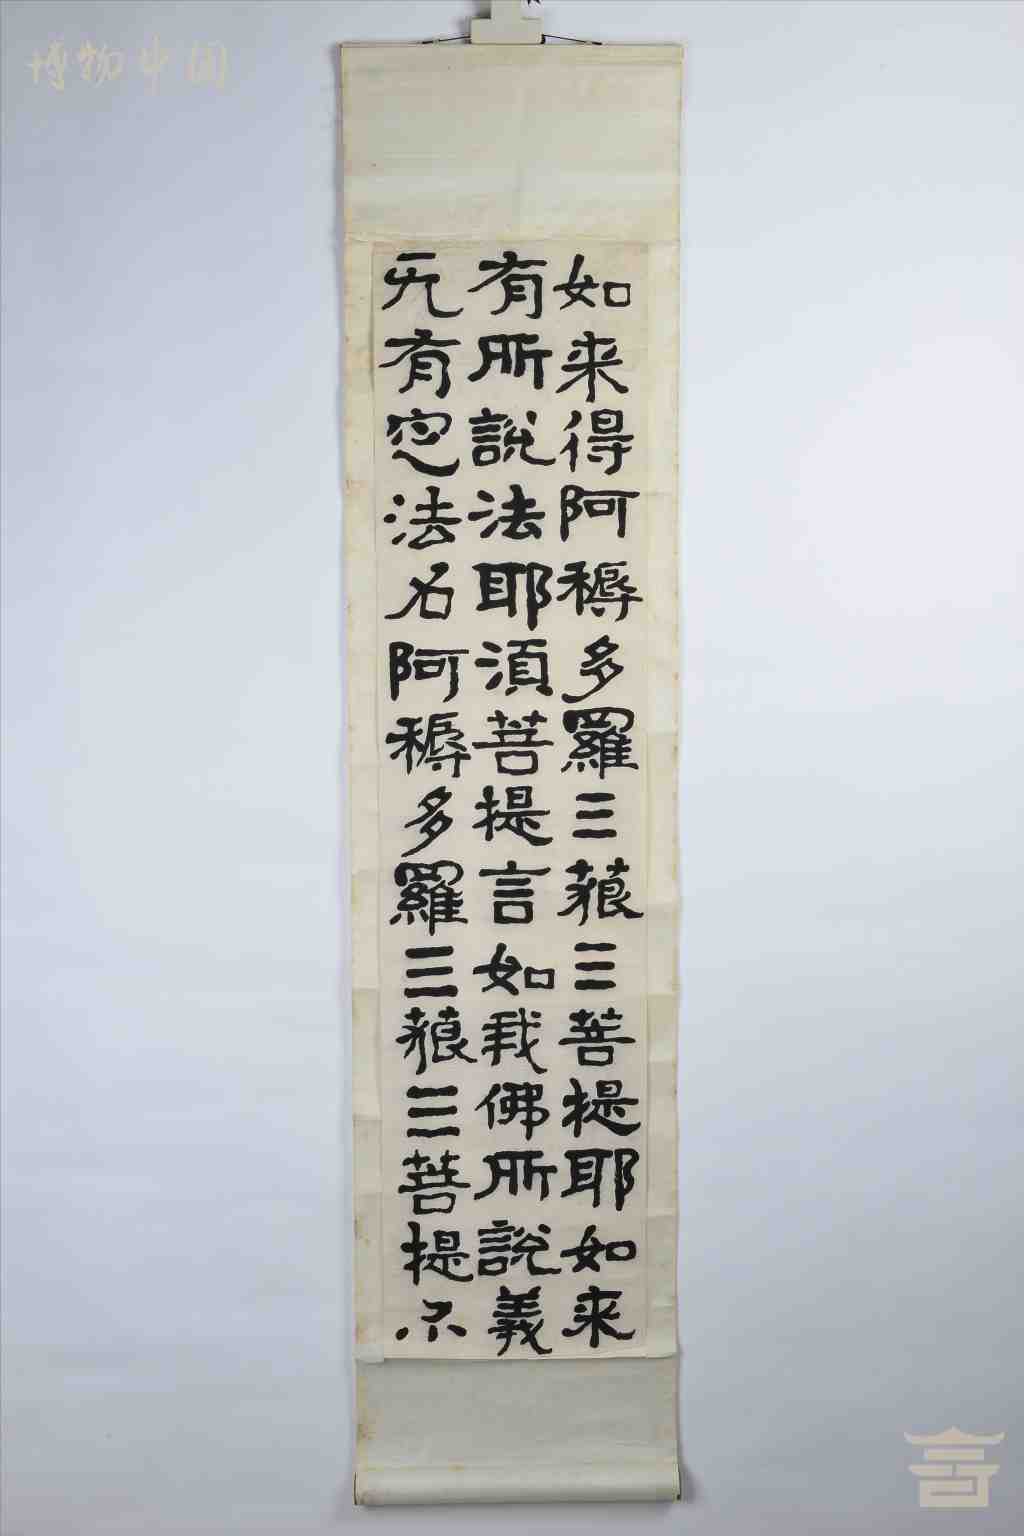 博物中国
如来得阿耨多羅三藐三菩提耶如来
有所說法耶湏菩提言如我佛所說義
无有㝎法名阿耨多羅三藐三菩提尒